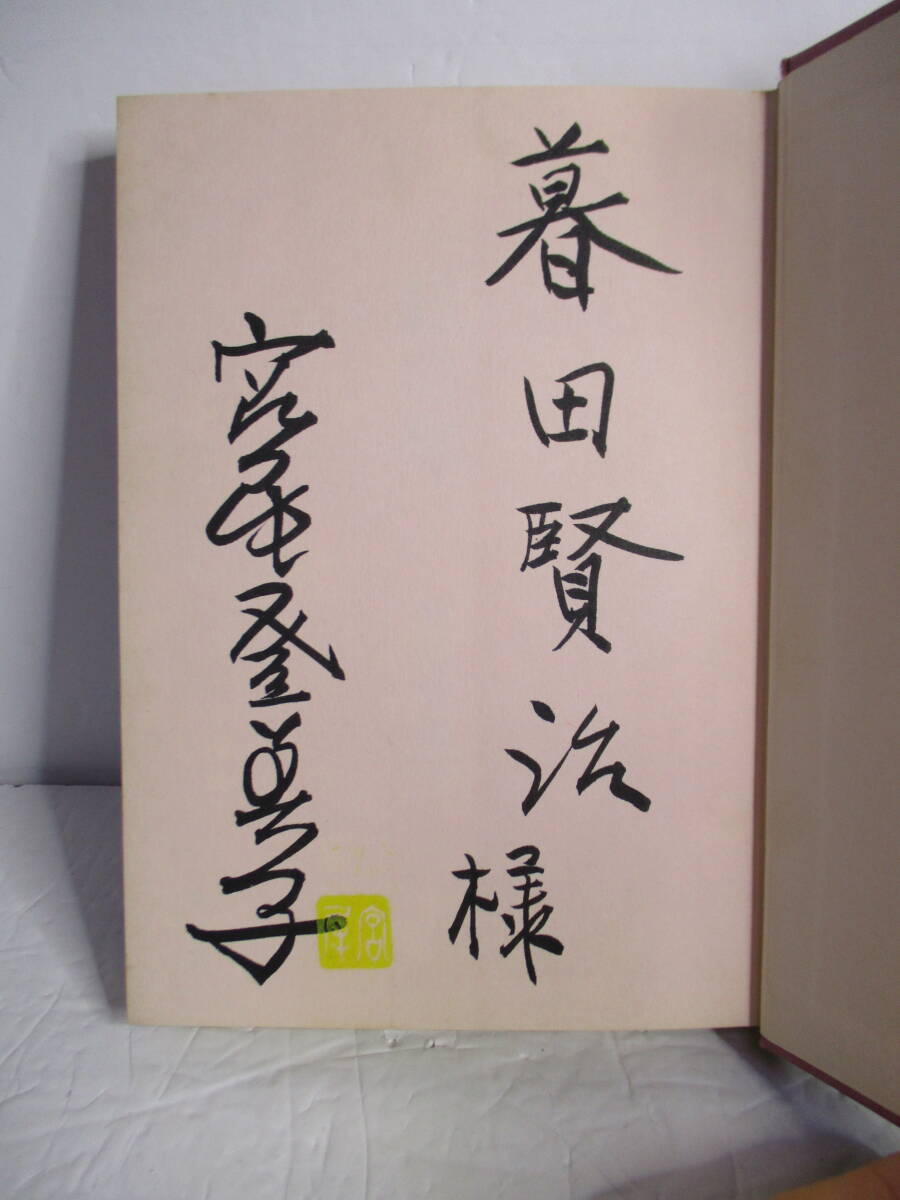 暮田賢治様
宮尾登美子
宮尾